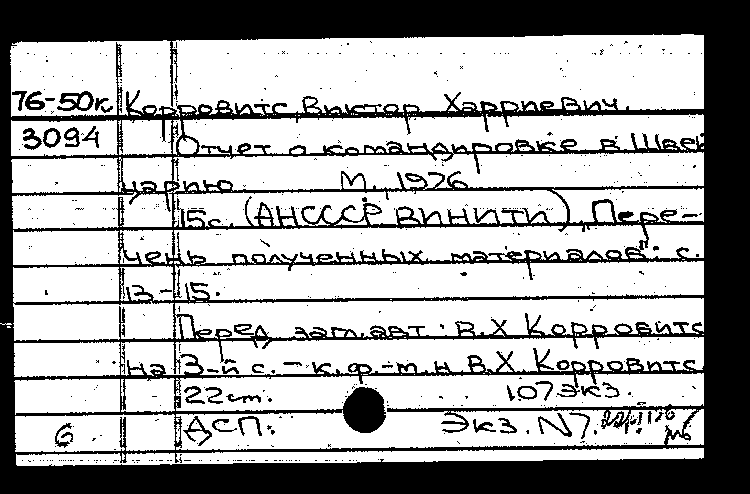 76-50к Корровитс, Виктор Харриевич.
3094 Отчет о командировке в Швей
царию. М., 1976
15с. (АН СССР ВИНИТИ). "Пере-
чень полученных материалов": с.
13-15.
Перед загл. авт.: В.Х Корровитс
на 3-й с. - к.ф-м.н В.Х. Корровитс.
22см. 107экз.
6 ДСП. Экз. N7.